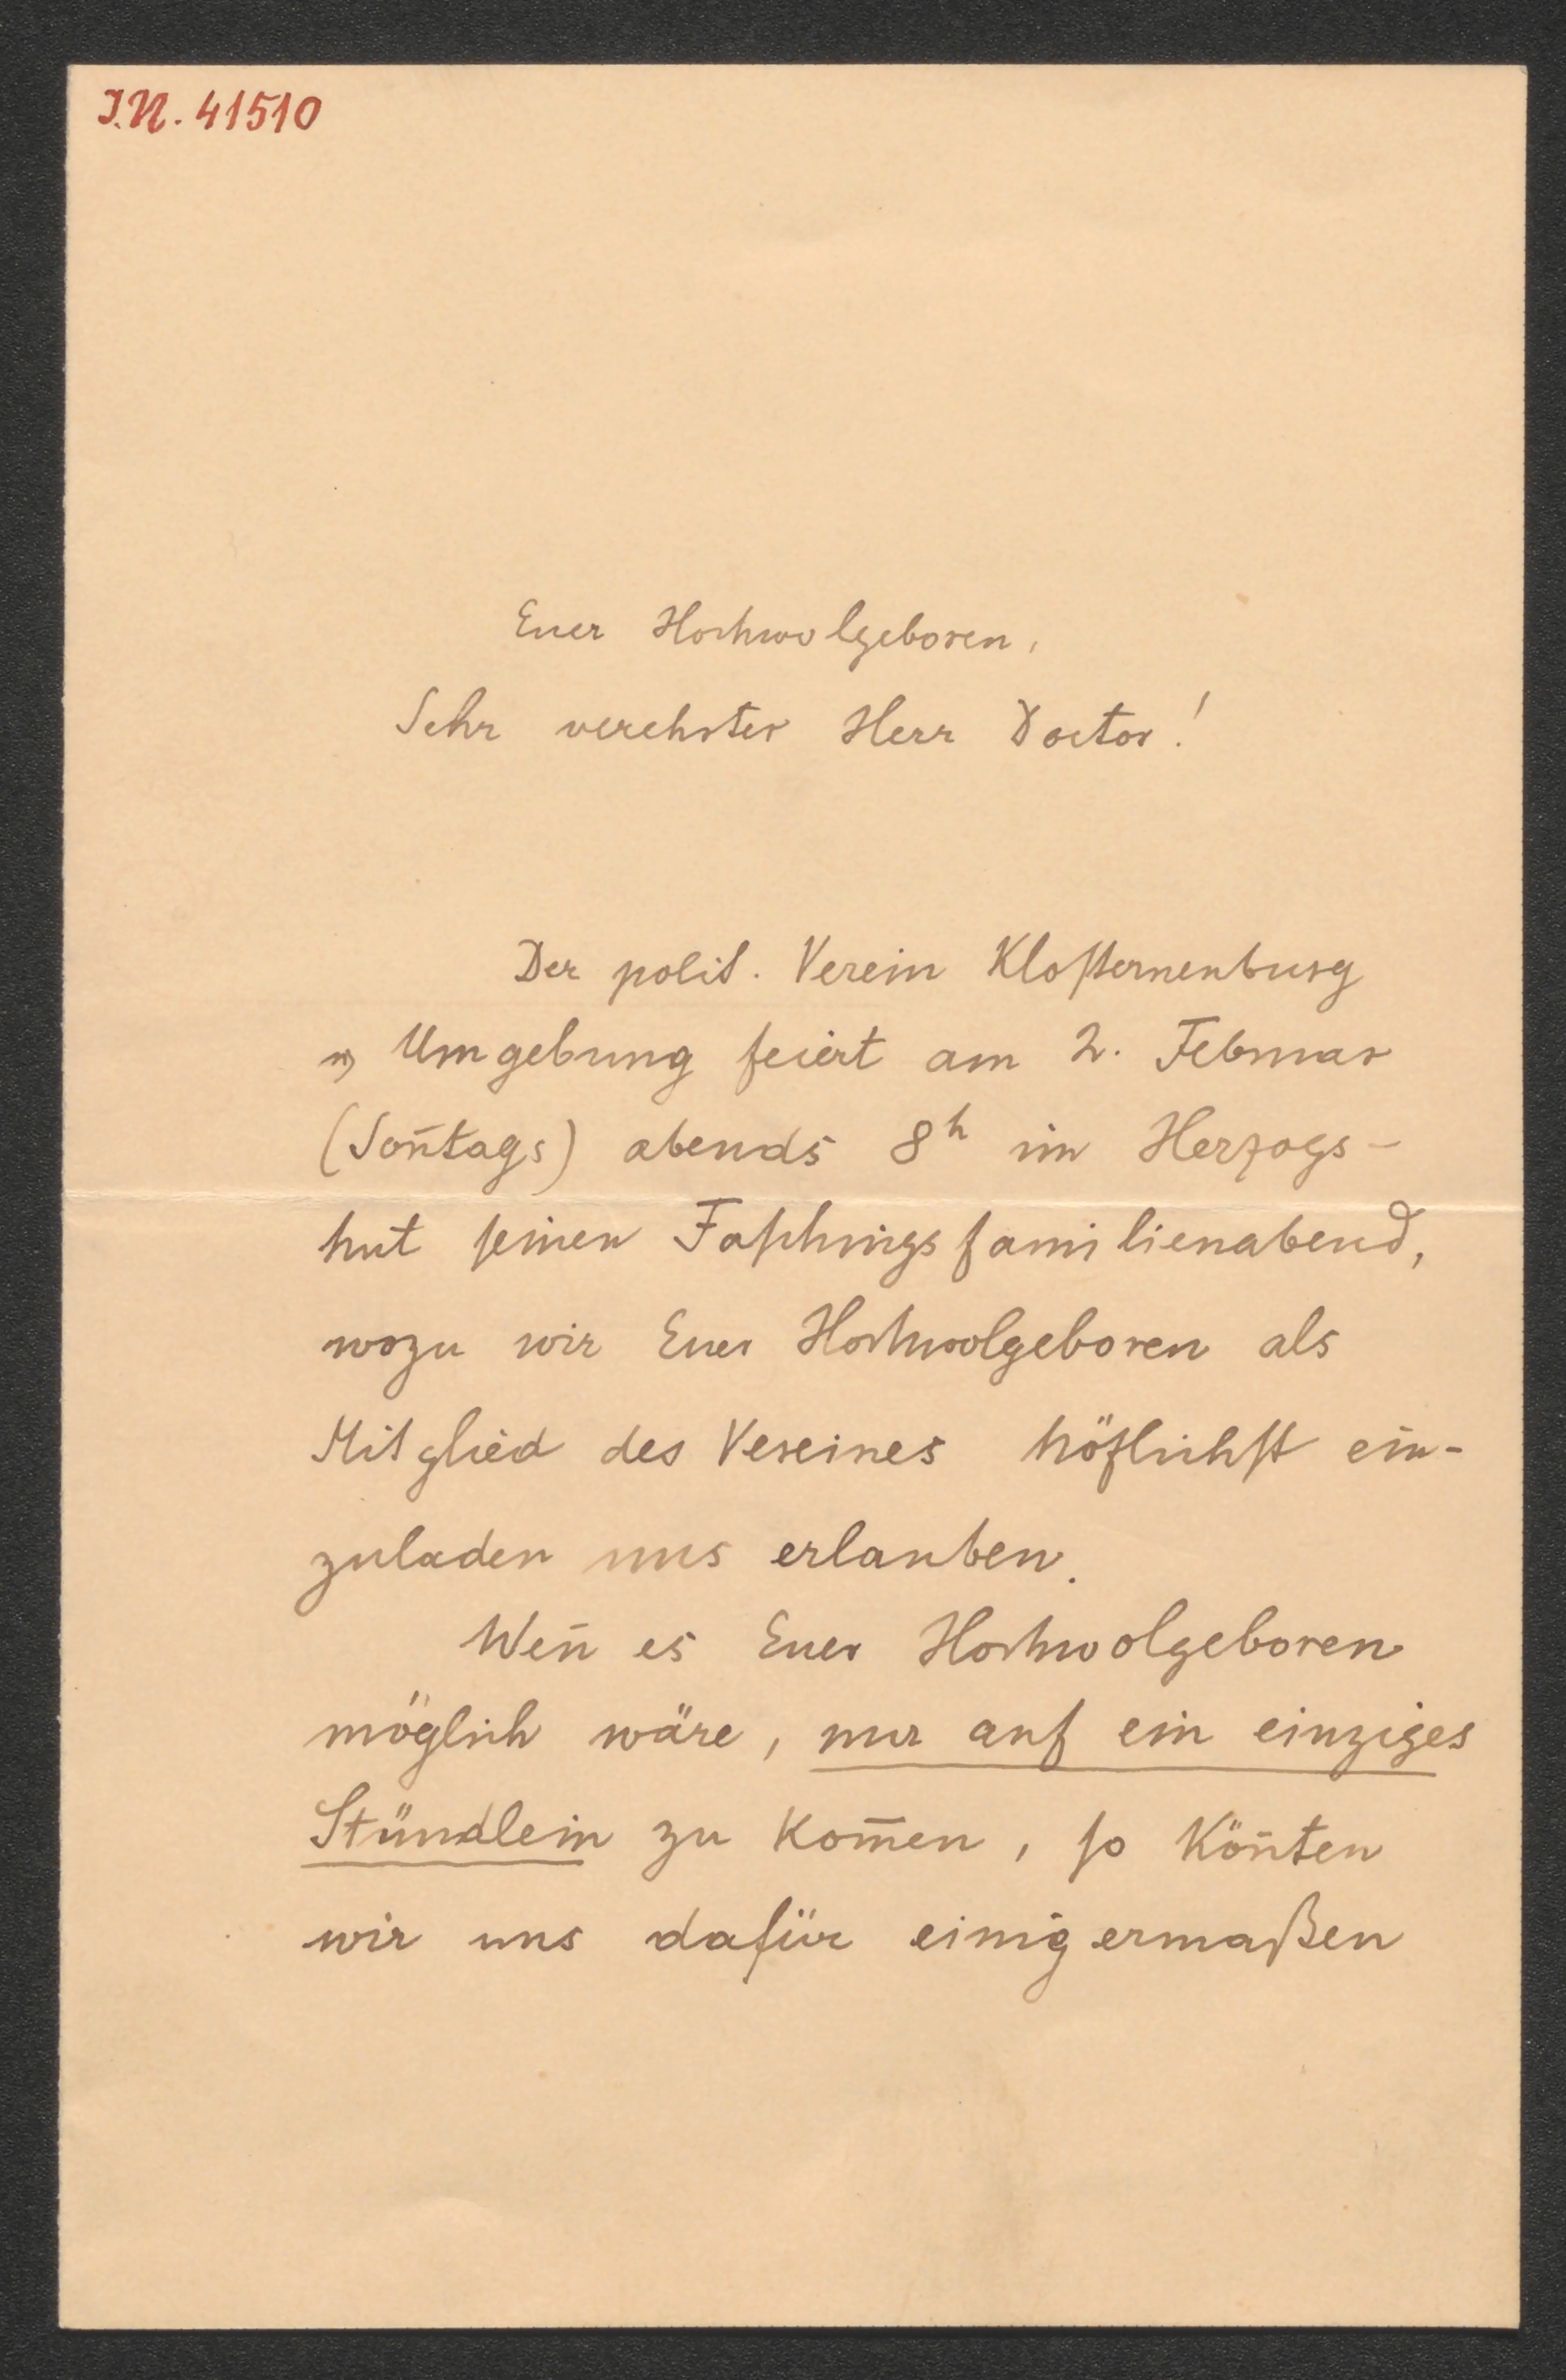 I.N. 41510
Euer Hochwolgeboren,
Sehr verehrter Herr Doctor!
Der polit. Verein Klosterneuburg
u Umgebung feiert am 2. Februar
(Son̄tags) abends 8h im Herzogs-
hut seinen Faschingsfamilienabend,
wozu wir Euer Hochwolgeboren als
Mitglied des Vereines höflichst ein-
zuladen uns erlauben.
Wen̄ es Euer Hochwolgeboren
möglich wäre, nur auf ein einziges
Stündlein zu kom̄en, so kön̄ten
wir uns dafür einigermaßen